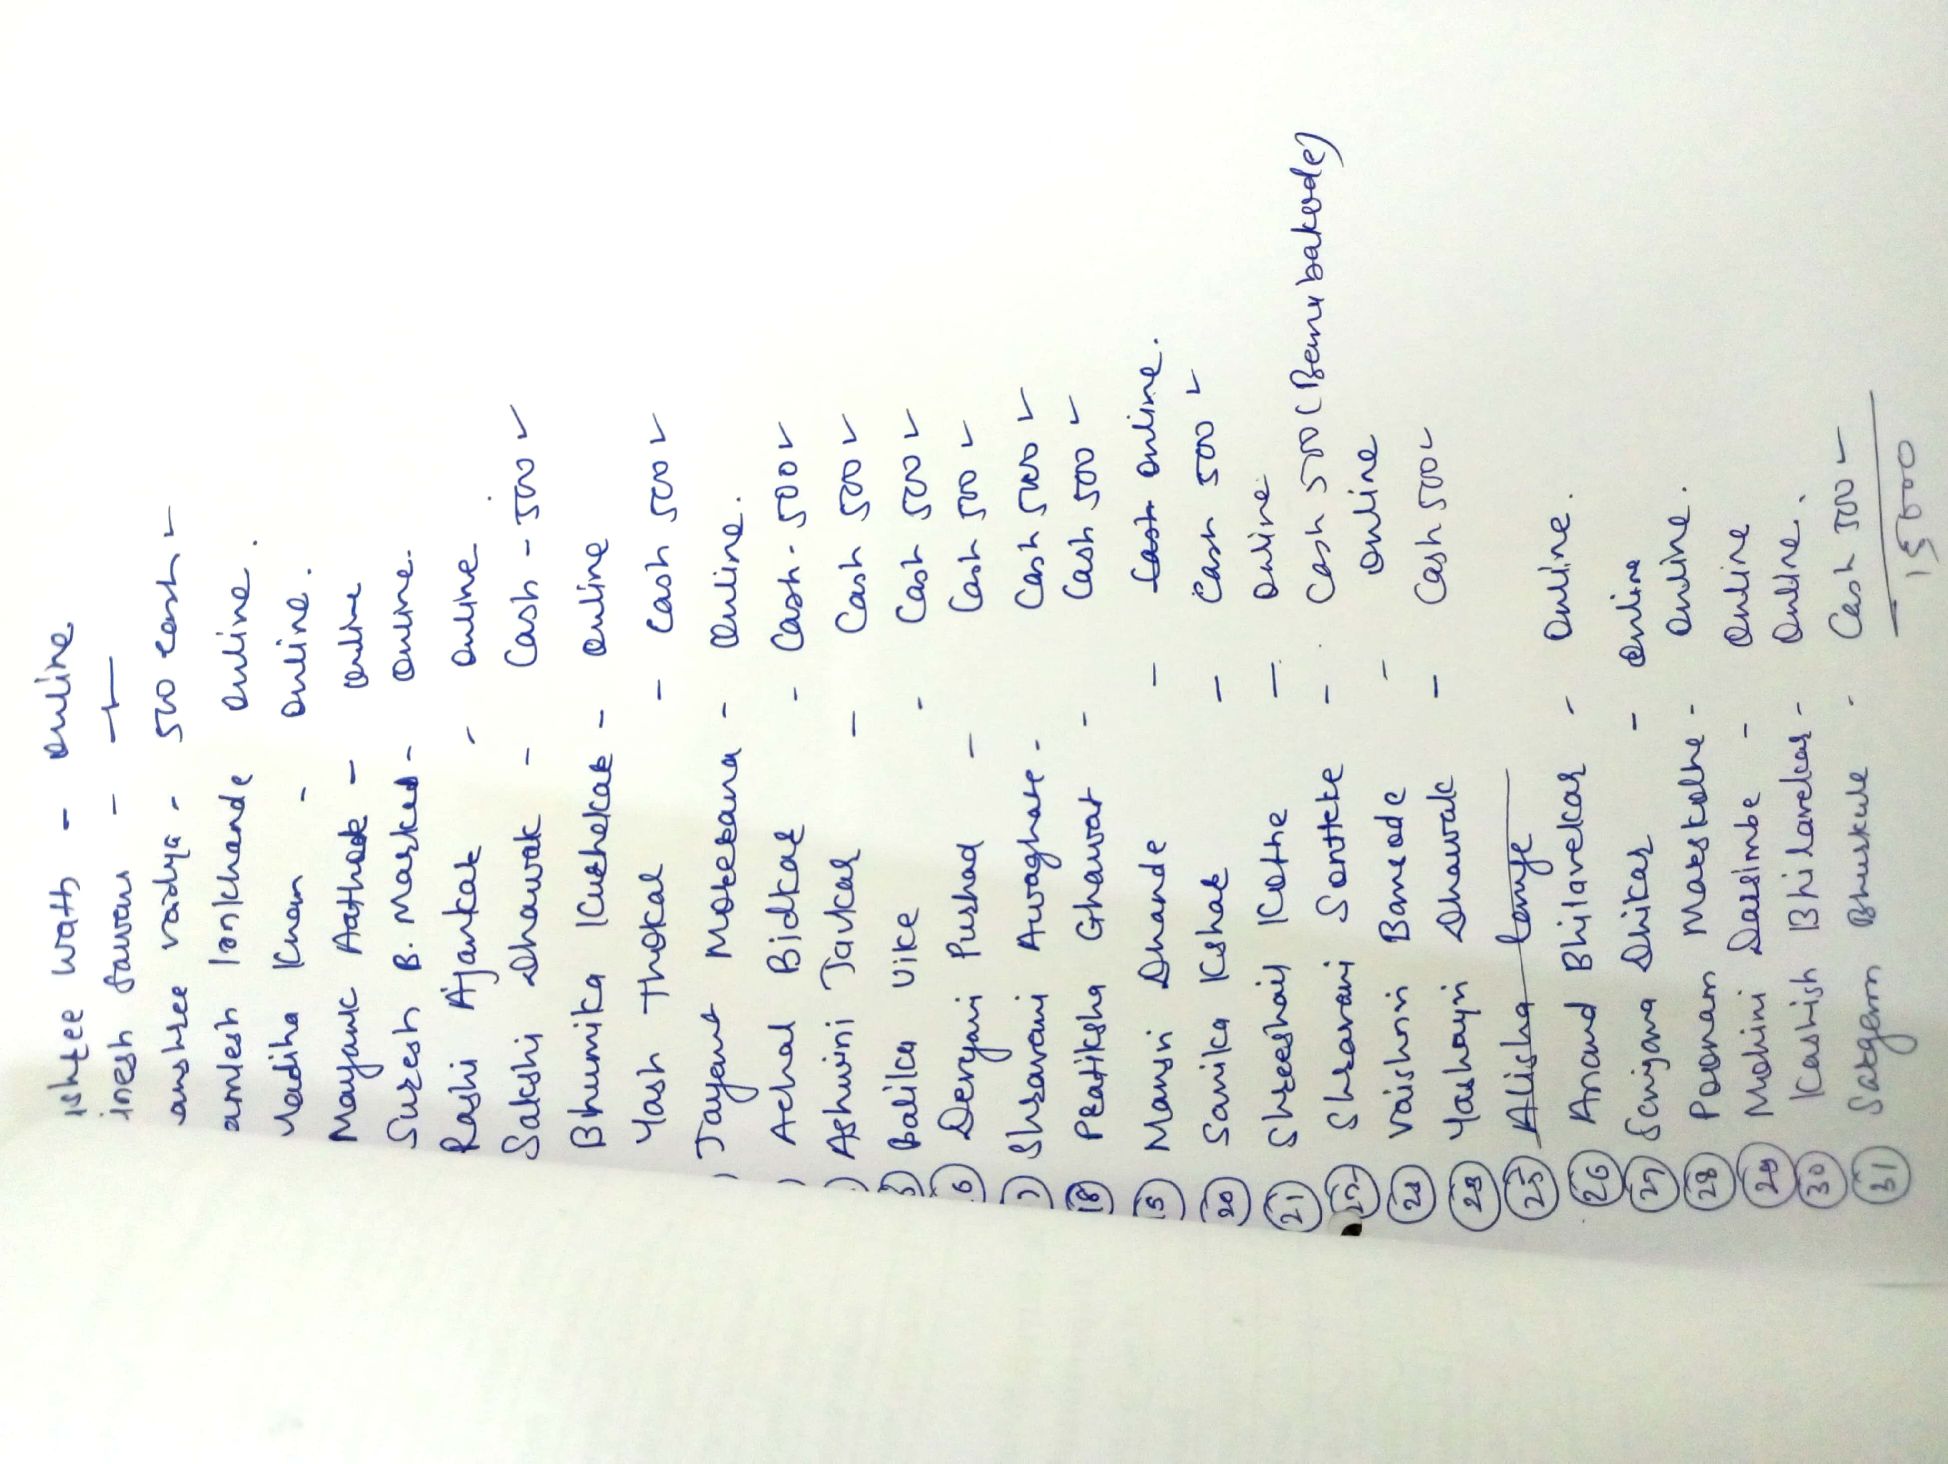 ishtee watts - online
inesh sawant - 
anshree vaidya - 500 cash ✓
amlesh lonkhande online.
Madiha Khan - online.
Mayank Aathode - online
Suresh B. Maskar - online.
Rashi Ajankar - online
Sakshi Dhawak - Cash - 500 ✓
Bhumika Kushekar - online
Yash Thokal - cash 500 ✓
) Jayant Motebana - online.
) Achal Bidkar - Cash - 500 ✓
) Ashwini Javkar - Cash 500 ✓
5) Balika Uike - Cash 500 ✓
6) Devyani Pushad - Cash 500 ✓
7) Shravani Awaghate - Cash 500 ✓
18 Pratiksha Ghawat - Cash 500 ✓
19 Mansi Dhande - Cash online.
20 Sanika Kshak - Cash 500 ✓
21 Shreeshail Kothe - online
22 Shravani Sontkke - Cash 500 (Benu bakode)
23 Vaishnvi Bansode - online
23 Yashayin Dhawak - Cash 500 ✓
25 Alisha
26 Anand Bhilavekar - online.
27 Sanjana Dhikar - online
28 Poonam Maskolhe - online.
29 Mohini Dassimbe - online
30 Kashish Bhilavekar - online.
31 Sargam Bhuskule - Cash 500 ✓
15000